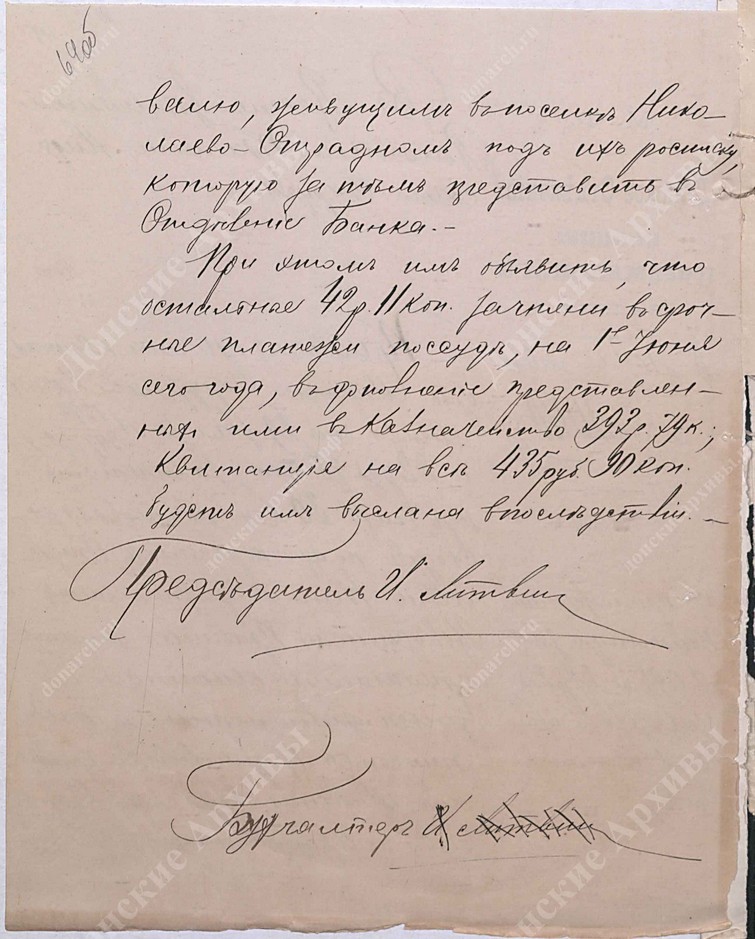 69об
валю, живущимъ въ поселкѣ Нико-
лаево-Отрадномъ подъ ихъ росписку,
которую за тѣмъ представить въ
Отдѣленіе Банка.-
При этомъ имъ объявить, что
остальные 42 р. 11 коп. зачтены въ сроч-
ные платежи по ссудѣ, на 1е Іюня
сего года, въ дополненіе представлен-
ныхъ ими въ Казначейство 393 р. 79 к.;
Квитанція на всѣ 435 руб. 90 коп.
будетъ имъ выслана впослѣдствіи.-
Предсѣдатель И. Литвин
Бухгалтеръ И Литвин
Донские Архивы
donarch.ru